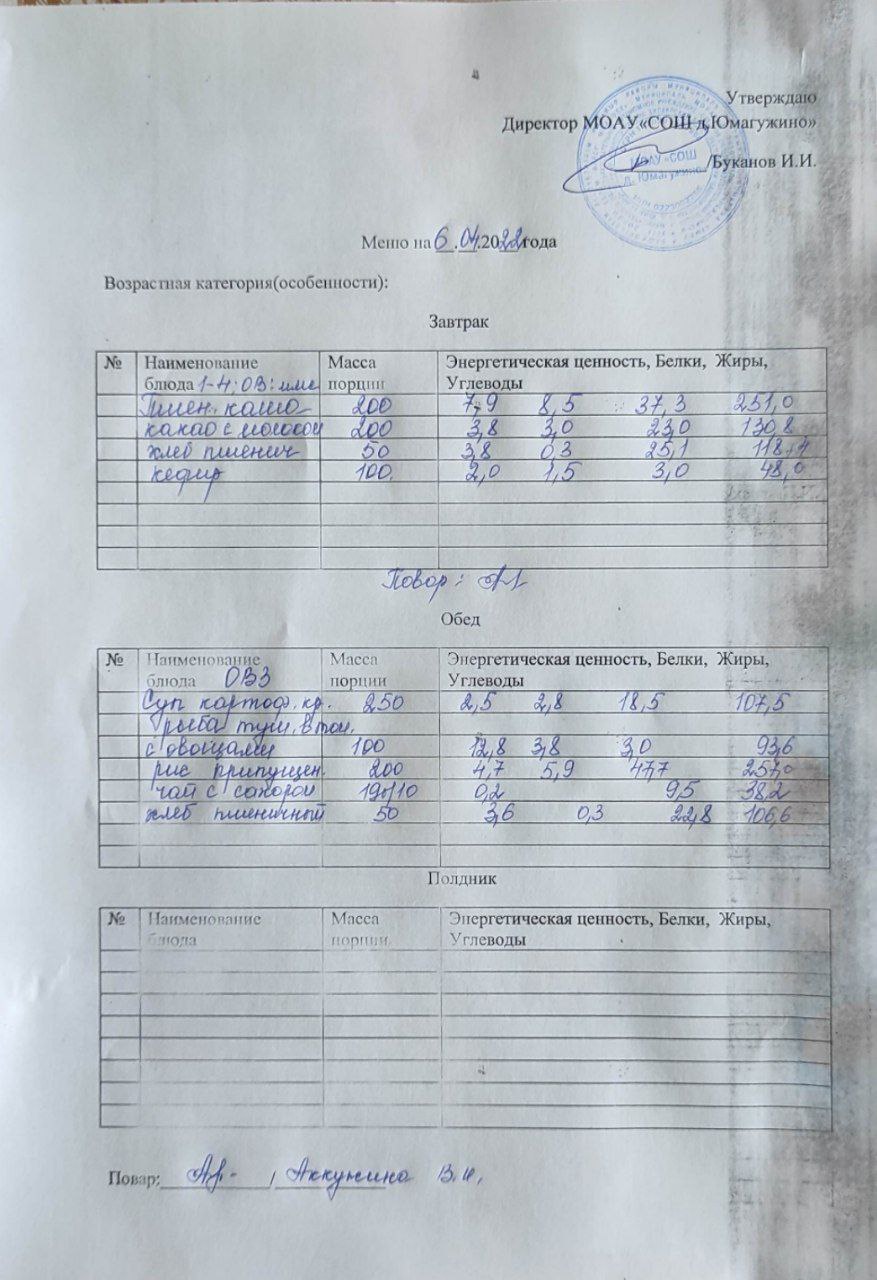 Утверждаю
Директор МОАУ«СОШ д.Юмагужино»
/Буканов И.И.
МОАУ «СОШ
д. Юмагужино»
Меню на 6.04.2022года
Возрастная категория(особенности):
Завтрак
№ Наименование Масса Энергетическая ценность, Белки, Жиры,
блюда 1-4; ОВ: порции Углеводы
Пшен. каша 200 7,9 8,5 37,3 251,0
какао с молоком 200 3,8 3,0 23,0 130,8
хлеб пшенич 50 3,8 0,3 25,1 118,4
кефир 100 2,0 1,5 3,0 48,0
Повар:
Обед
№ Наименование Масса Энергетическая ценность, Белки, Жиры,
блюда ОВЗ порции Углеводы
Суп картоф. кр. 250 2,5 2,8 18,5 107,5
рыба туш. в том.
с овощами 100 12,8 3,8 3,0 93,6
рис припущен. 200 4,7 5,9 47,7 257,0
чай с сахаром 190/10 0,2 9,5 38,2
хлеб пшеничный 50 3,6 0,3 22,8 106,6
Полдник
№ Наименование Масса Энергетическая ценность, Белки, Жиры,
блюда порции Углеводы
Повар: / Аккужина В.И.